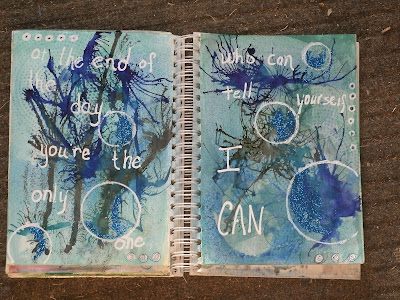 at the end of
the
day
you're the
only
one
who can
tell yourself
I
CAN